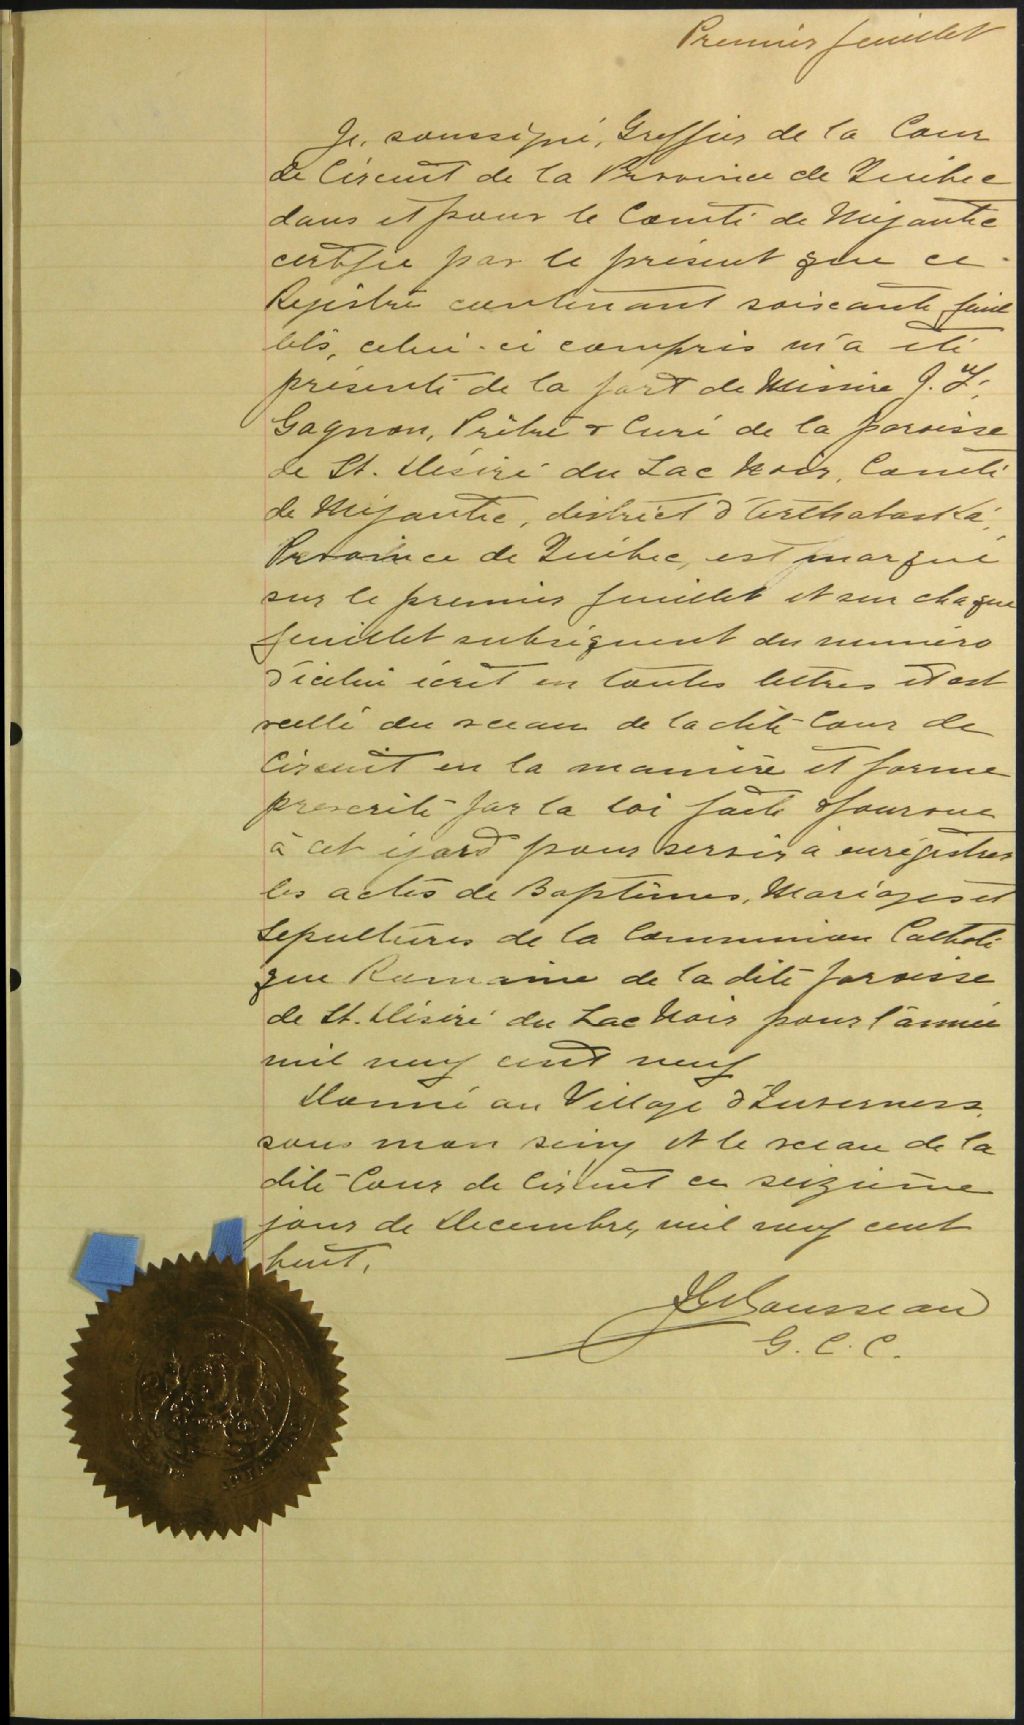 Premier feuillet
Je, soussigné, Greffier de la Cour
de Circuit de la Province de Québec
dans et pour le Comté de Mégantic
certifie par le présent que ce
Registre contenant soixante feuil
lets, celui-ci compris m'a été
présenté de la part de Messire J. F.
Gagnon, Prêtre & Curé de la paroisse
de St. Désiré du Lac Noir, Comté
de Mégantic, district d'Arthabaska,
Province de Québec, est marqué
sur le premier feuillet et sur chaque
feuillet subséquent du numéro
d'icelui écrit en toutes lettres et est
scellé du sceau de la dite Cour de
Circuit en la manière et forme
prescrite par la loi faite & pourvue
à cet égard pour servir à enregistrer
les actes de Baptêmes, Mariages et
Sépultures de la Communion Catholi
que Romaine de la dite paroisse
de St. Désiré du Lac Noir pour l'année
mil neuf cent neuf
Donné au Village d'Inverness
sous mon seing et le sceau de la
dite Cour de Circuit ce seizième
jour de Decembre, mil neuf cent
huit.
Rousseau
G. C. C.